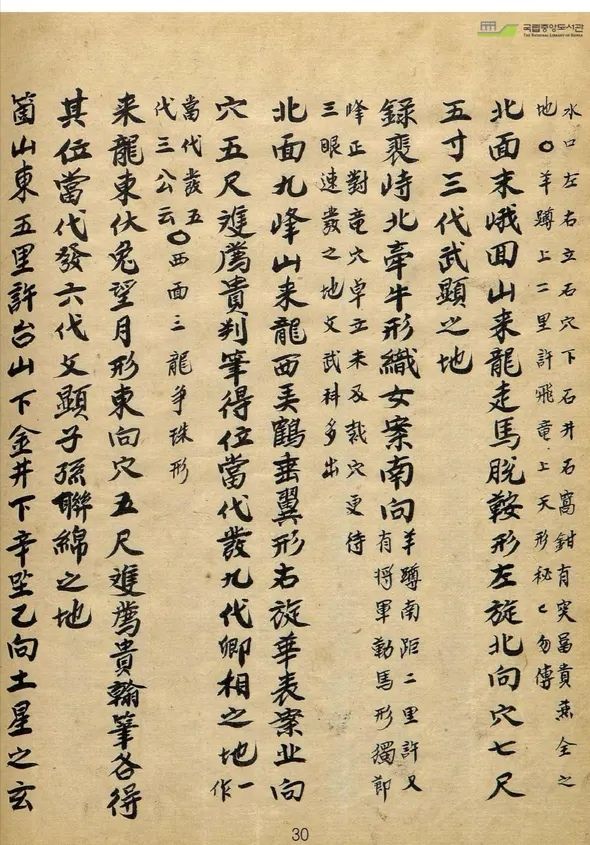 국립중앙도서관
THE NATIONAL LIBRARY OF KOREA
水口左右立石穴下石井石窩鉗有突冨貴兼全之
地〇羊蹲上二里許飛竜上天形秘〻勿傳
北面末峨回山来龍走馬脫鞍形左旋北向穴七尺
五寸三代武顕之地
錄裵峙北牽牛形織女案南向
羊蹲南距二里許又
有将軍勒馬形獨節
峰正對竜穴卓立未及裁穴更待
三眼速發之地文武科多出
北面九峰山来龍西美鶴垂翼形右旋華表案北向
穴五尺雙薦貴判筆得位當代發九代卿相之地
一
作
當代發五
代三公云〇西面三龍争珠形
来龍東伏兔望月形東向穴五尺雙薦貴翰筆各得
其位當代發六代文顕子孫聯綿之地
箇山東五里許台山下金井下辛坐乙向土星之玄
30